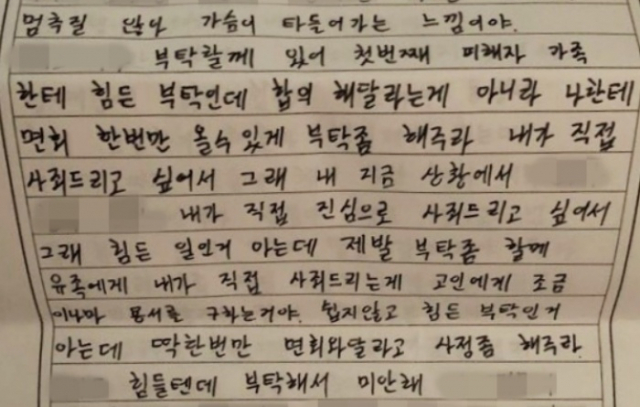 멈추질 않아 가슴이 타들어가는 느낌이야.
부탁할께 있어 첫번째 피해자 가족
한테 힘든 부탁인데 합의 해달라는게 아니라 나한테
면회 한번만 올수있게 부탁좀 해주라 내가 직접
사죄드리고 싶어서 그래 내 지금 상황에서
내가 직접 진심으로 사죄드리고 싶어서
그래 힘든 일인거 아는데 제발 부탁좀 할께
유족에게 내가 직접 사죄드리는게 고인에게 조금
이나마 용서를 구하는거야. 쉽지않고 힘든 부탁인거
아는데 딱한번만 면회와달라고 사정좀 해주라
힘들텐데 부탁해서 미안해